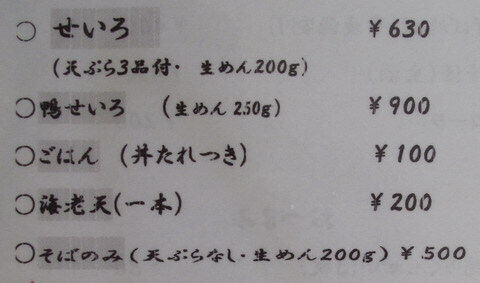 ○ せいろ ¥630
(天ぷら3品付・生めん200g)
○鴨せいろ (生めん250g) ¥900
○ごはん (丼たれつき) ¥100
○海老天(一本) ¥200
○そばのみ(天ぷらなし・生めん200g) ¥500